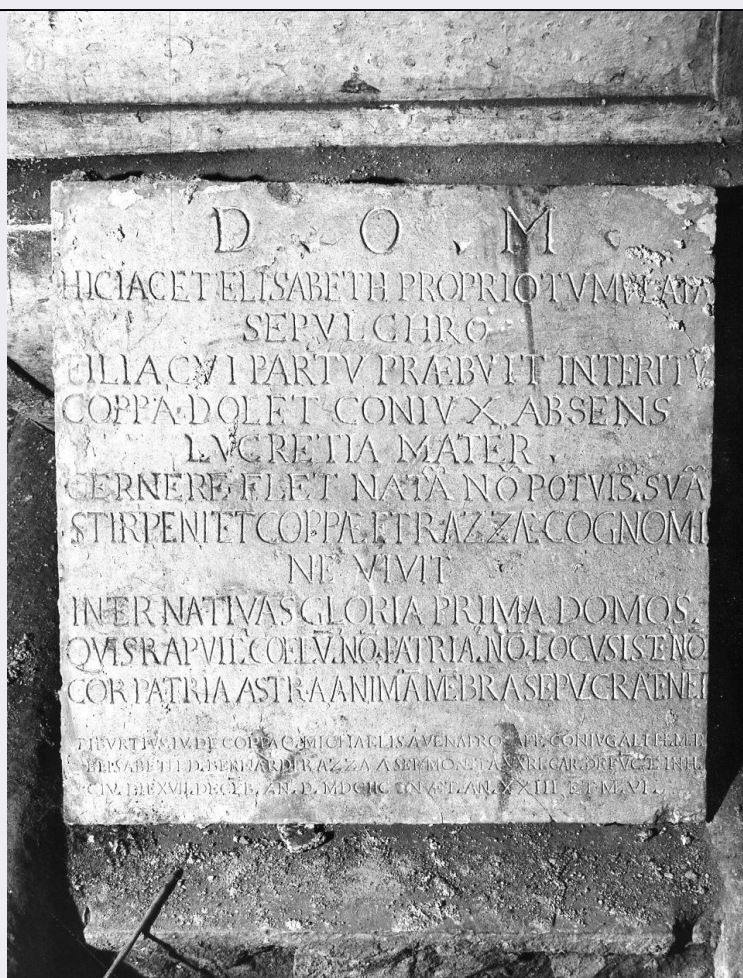 D . O . M .
HIC IACET ELISABETH PROPRIO TVMVLATA
SEPVLCHRO
FILIA CVI PARTV PRÆBVIT INTERITV
COPPA DOLET CONIVX ABSENS
LVCRETIA MATER .
CERNERE FLET NATÃ NÕ POTVIS. SVÃ
STIRPE NITET COPPÆ ET RAZZÆ COGNOMI
NE VIVIT
INTER NATIVAS GLORIA PRIMA DOMOS.
QVIS RAPVIT. COELV̄. NŌ. PATRIA. NŌ. LOCVS IST. NO
COR PATRIA ASTRA ANIMA MĒBRA SEPVCRA TENET
TIBVRTIVS IV. DE COPPA Q. MICHAELIS AVENA CONIVGALI
ELISABETH D. BERNARDI RAZZA
CIV. DIE XVII. DECĒB. AN. D. MDCIIC ÆT. AN. XXIII ET M. VI.